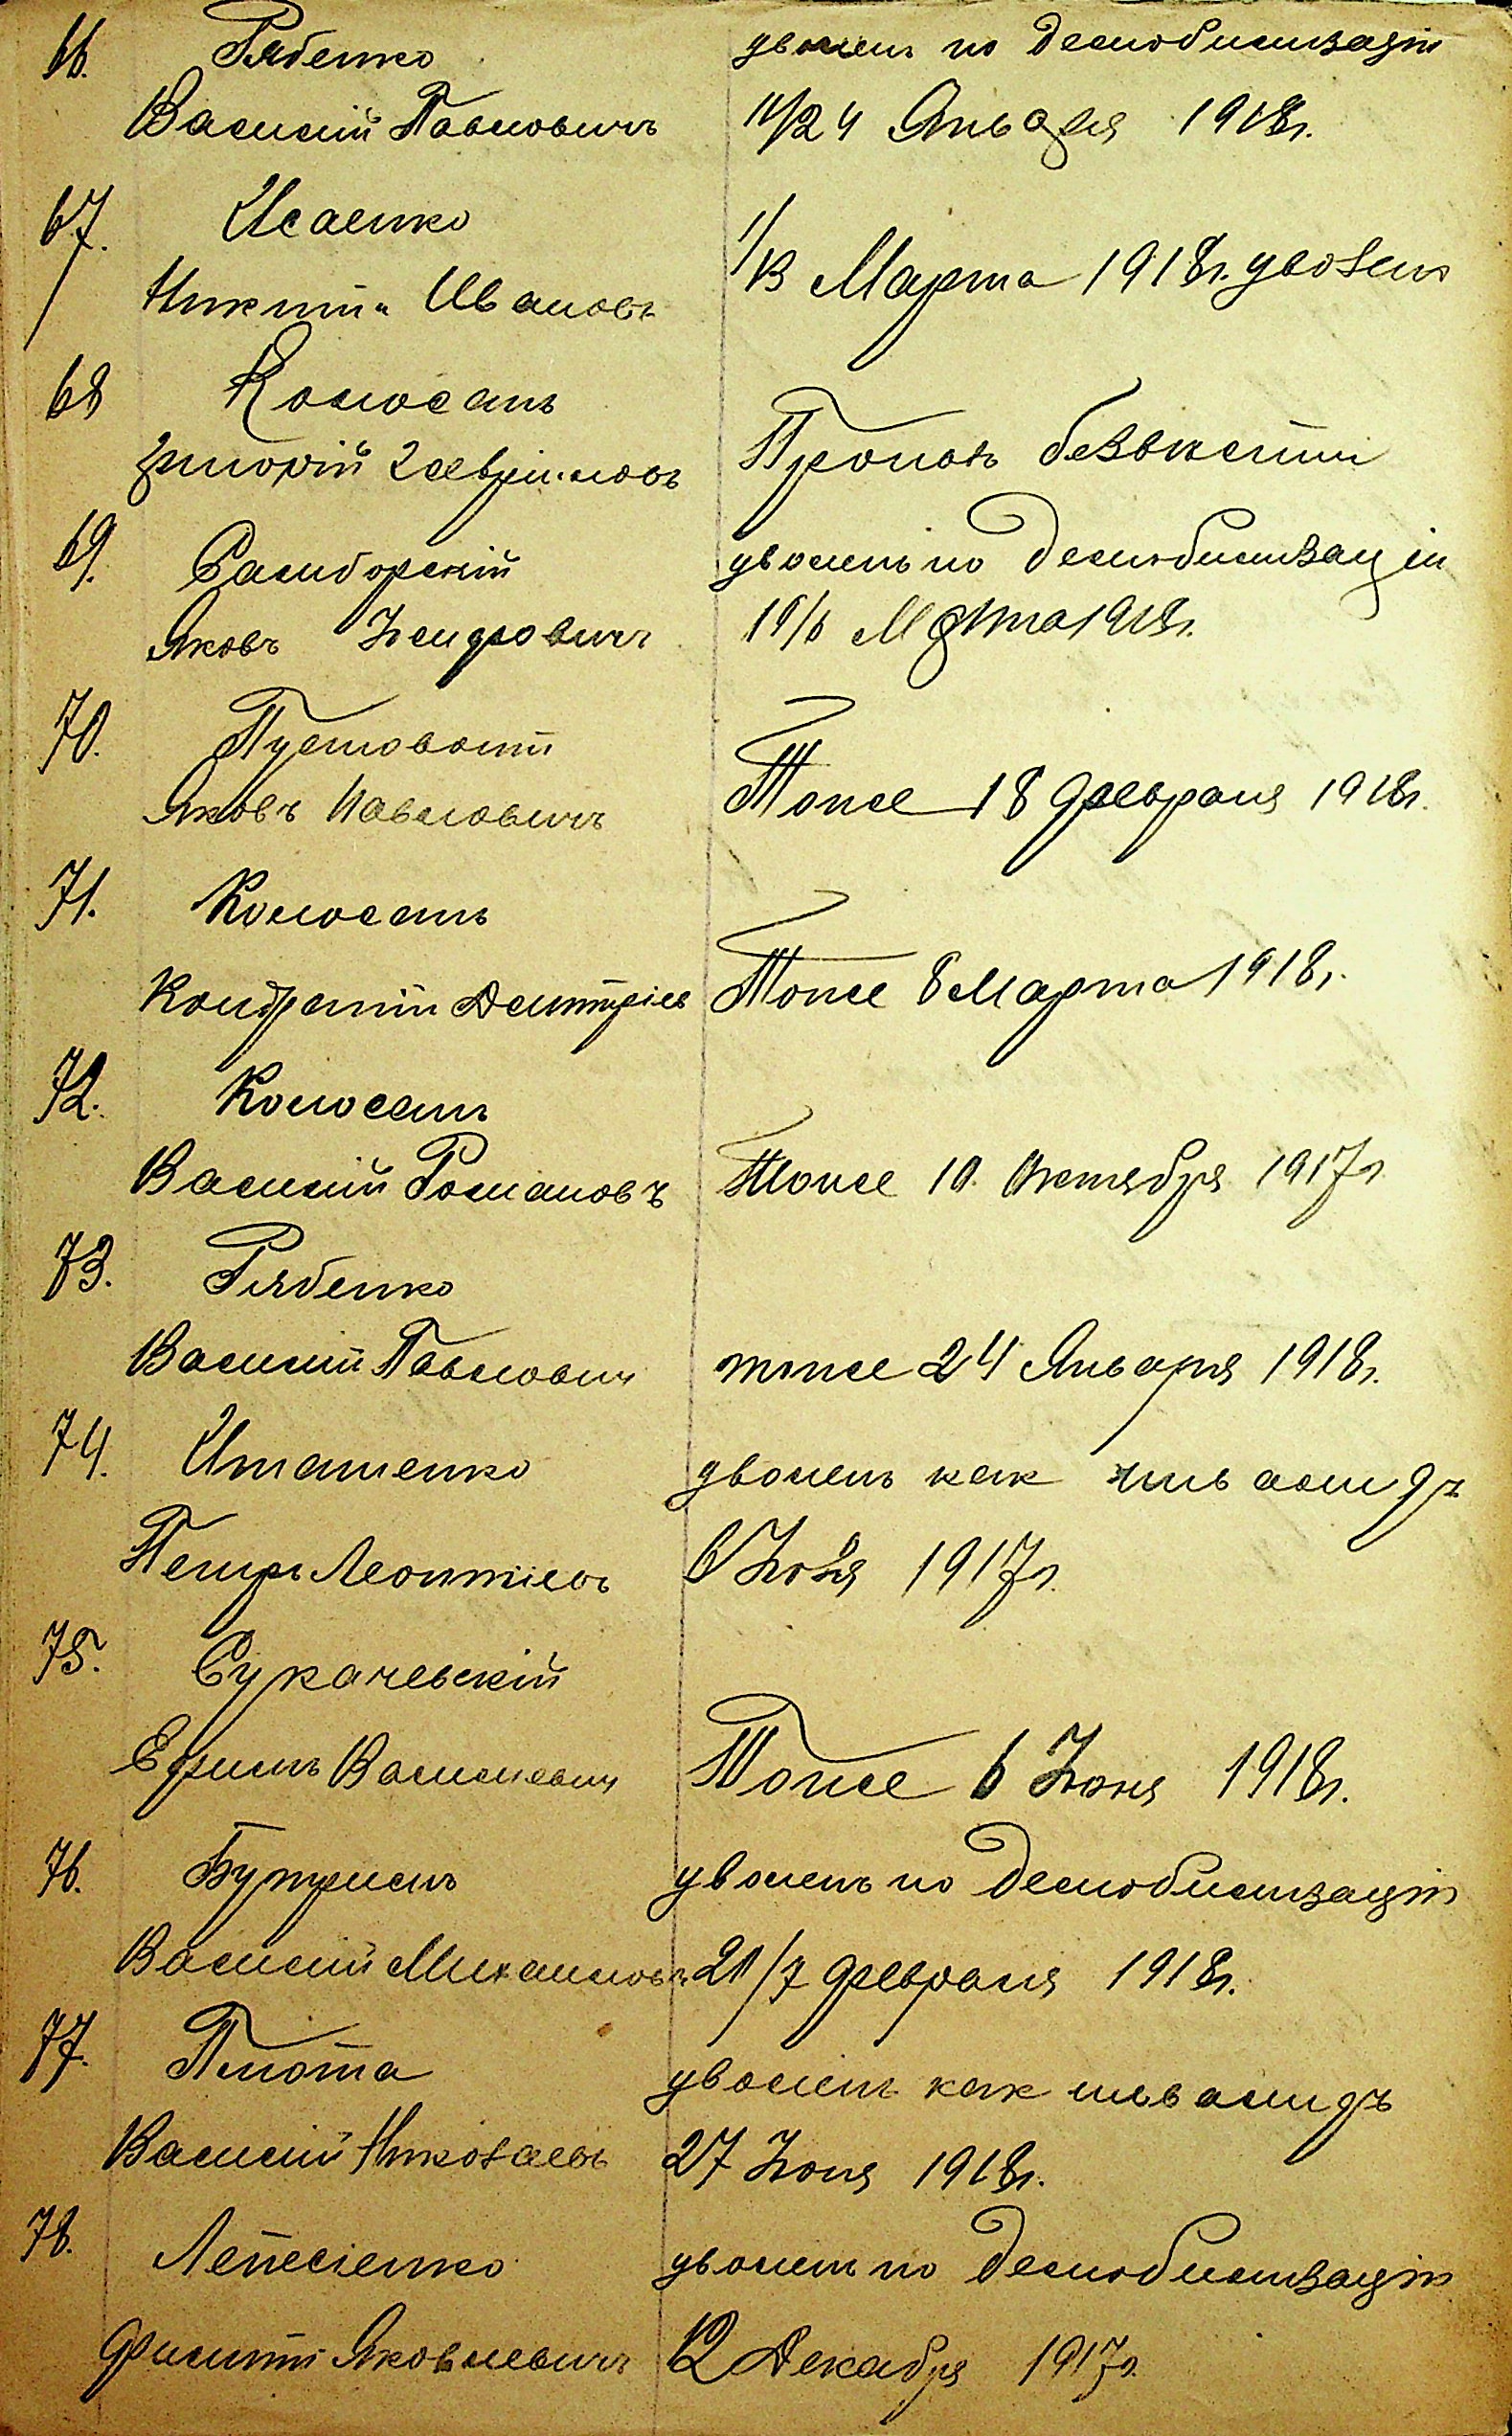 66. Рябенко уволенъ по демобилизаціи
Василій Павловичъ 11/24 Января 1918г.
67. Исаенко
Никита Ивановъ 1/13 Марта 1918г. уволенъ
68 Колосанъ
Григорій Пропалъ безвѣсти
69. Самборскій уволенъ по демобилизаціи
Яковъ 19/6 Марта 1918г.
70. Пустовоитъ
Яковъ Павловичъ Тоже 18 Февраля 1918г.
71. Колосанъ
Кондратій Дмитріев Тоже 8 Марта 1918г.
72. Колосанъ
Василій Романовъ Тоже 10. Октября 1917г.
73. Рябенко
Василій Павлович тоже 24 Января 1918г.
74. Игнатенко уволенъ как инвалидъ
Петръ Леонтіевъ 6 1917г.
75. Сукачевскій
Ефимъ Василевич Тоже 6 Іюня 1918г.
76. уволенъ по демобилизаціи
Василій Михаиловъ 20/7 Февраля 1918г.
77. Плюта уволенъ как инвалидъ
Василій Николаевъ 27 Іюня 1918г.
78. уволенъ по демобилизаціи
Филиппъ Яковлевичъ 12 Декабря 1917г.